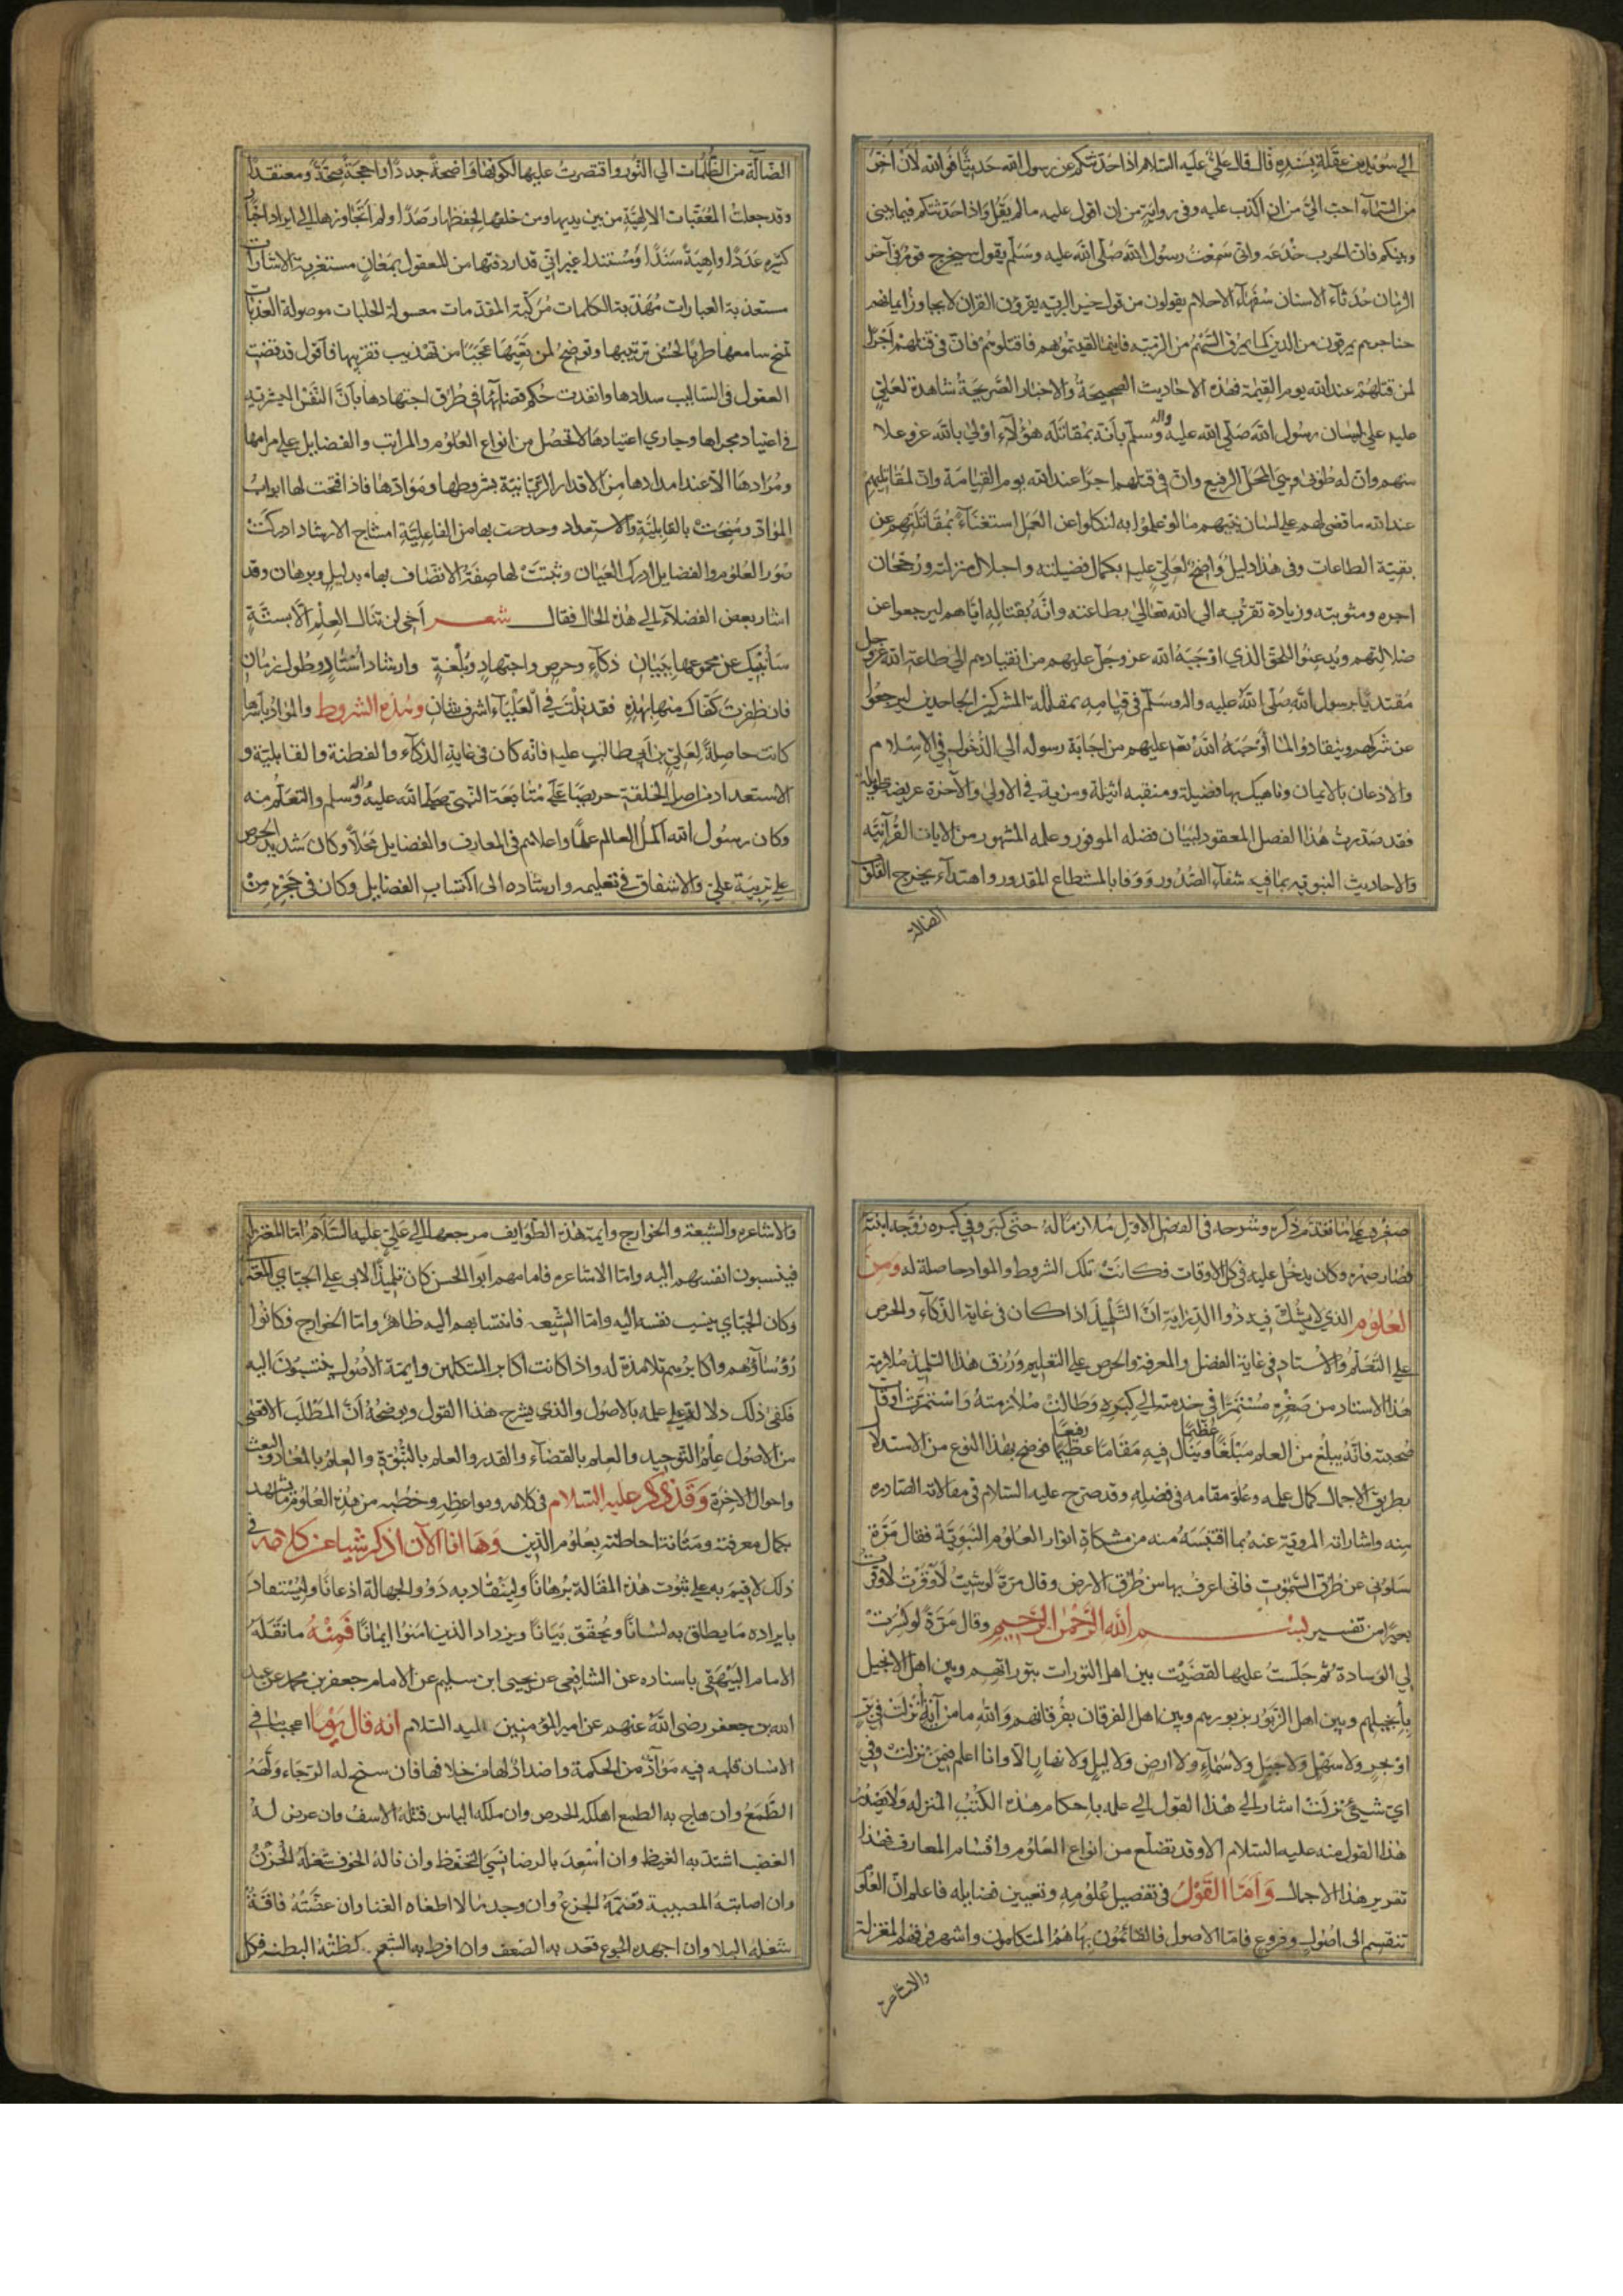 الي سُوَيد بن غفلة بسنده قال قال عليّ عليه السلام اذا حدثتكم عن رسول الله حديثًا فوالله لان اخرّ
من السّمآء احبّ اليّ من ان اكذب عليه وفي رواية من ان اقول عليه ما لم يقل واذا حدثتكم فيما بيني
وبينكم فان الحرب خدعه واني سمعتُ رسول الله صلّى الله عليه وسلّم يقول سيخرج قوم في آخر
الزمان حُدَثآء الاسنان سُفَهآء الاحلام يقولون من قول خير البريّه يقرؤن القران لا يجاوز ايمانهم
حناجرهم يمرقون من الدين كما يمرق السّهم من الرّميّه فاينما لقيتموهم فاقتلوهم فان في قتلهم اجرًا
لمن قتلهم عند الله يوم القيمة فهذه الاحاديث الصحيحة والاخبار الصّريحة شاهدة لعليّ
عليه على لسان رسول الله صَلّى الله عليه واله وسلّم بأنّه بمقاتلة هؤلآء اولى بالله عزوعلا
منهم وان له طوبى وهي المحلّ الرفيع وان في قتلهم اجرًا عند الله يوم القيامة وان لمقاتليهم
عند الله ما قضى لهم على لسان نبيّهم ما لو علموا به لنكلوا عن العمل استغنآءً بمقاتلتهم عن
بقيّة الطاعات وفي هذا دليلٌ واضحٌ لعليّ عليه بكمال فضيلته واجلال منزلته ورجحان
اجره ومثوبته وزيادة تقرّبه الى الله تعالى بطاعته وانّه بقتاله ايّاهم ليرجعوا عن
ضلالتهم ويذعنوا للحقّ الذي اوجبه الله عز وجل عليهم من انقيادهم الى طاعة الله عزوجل
مقتديًا برسول الله صَلّى الله عليه واله وسلّم في قيامه بمقاتلة المشركين الجاحدين ليرجعوا
عن شركهم وينقادوا لما اوجبه الله تعم عليهم من اجابة رسوله الى الدّخول في الاسلام
والاذعان بالايمان وناهيك بها فضيلة ومنقبه اثيلة ومزية في الاولى والآخرة عريضة طويلة
فقد صدرت هذا الفصل المعقود لبيان فضله الموفور وعلمه المشهور من الايات القرآنيّه
والاحاديث النبويّه بما فيه شفآء الصّدور ووفا بالمستطاع المقدور واهتدآء يخرج القلوب
الضالة
الضّالّة من الظّلمات الي النّور واقتصرت عليها لكونها واضحة جددًا واحجّة صحّةً ومعتقدًا
وقد جعلتُ المعقّبات الالهيّة من بين يديها ومن خلفها لحفظها رصدًا ولم اتجاوزها الى ايراد اخبار
كثيره عددًا واهية سندًا ومستندًا غير اني قد اردفتها من للعقول بمعانٍ مستغربة الاشارات
مستعذبة العبارات مهذّبة الكلمات مركّبة المقدمات معسولة الحلبات موصولة العذبات
تمنح سامعها طربًا لحسن ترتيبها وتوضح لمن يعيها عجبًا من تهذيب تقريبها فاقول قد قضت
العقول في اساليب سدادها وانفذت حُكم قضائها في طُرق اجتهادها بأنّ النفس البشريّه
في اعتياد مجراها ومجاري اعتيادها لا تحصل من انواع العلوم والمراتب والفضايل على مرامها
ومُرادها الا عند امدادها من الاقدار الربّانيّة بشروطها وموادّها فاذا فتحت لها ابواب
الموادّ ومنحت بالقابليّة والاستعداد وحدحت بها من الفاعليّة امشاج الارشاد ادركت
نور العلوم والفضايل ادراك العيان وثبتت لها صفة الاتّصاف بها بدليل وبرهان وقد
اشار بعض الفضلآء الي هذه الحال فقال شعــر أخي لن تنال العِلم الّا بستّةٍ
سأنبيك عن مجموعها ببيانِ ذكآءٍ وحرصٍ واجتهادٍ وبلغةٍ وارشاد أستاذٍ وطول زمانِ
فان ظفرت كفّاك منها بهذهِ فقد نلت في العلياء اشرف شانِ وهذه الشروط والموادّ بأسرها
كانت حاصلة لعلي بن ابي طالب عليه فانّه كان في غاية الذكآء والفطنة والقابليّة و
الاستعداد من اصل الخلقة حريصًا على متابعة النبي صلى الله عليه واله وسلم والتعلّم منه
وكان رسول الله اكمل العالم علمًا واعلاهم في المعارف والفضايل محلًّا وكان شديد الحرص
على تربية عليّ والاشفاق في تعليمه وارشاده الى اكتساب الفضايل وكان في حجره من
صغره على ما تقدّم ذكره وشرحه في الفصل الاوّل ملازمًا له حتّى كبر وفي كبره زوّجه ابنته
فصار صهره وكان يدخل عليه في كل الاوقات فكانت تلك الشروط والمواد حاصلة له ومن
العلوم الذي لا يشكّ فيه ذوا الدّراية انّ التّلميذ اذا كان في غاية الذّكآء والحرص
على التّعلّم والاستاد في غاية الفضل والمعرفة والحرص على التعليم ورُزق هذا التلميذ ملازمة
هذا الاستاد من صغره مستمرًا في خدمته الى كبره وطالت ملازمته واستمرّت اوقات
صُحبته فانّه يبلغ من العلم مبلغًا عظيمًا وينال فيه مقامًا عظيمًا رفيعًا فوضح بهذا النوع من الاستدلال
بطريق الاجمال كمال علمه وعلوّ مقامه في فضله وقد صرح عليه السلام في مقالاته الصّادره
منه واشاراته المرويّة عنه بما اقتبسه منه من مشكاة انوار العلوم النبويّة فقال مرّة
سلوني عن طرق السموات فاني اعرف بها من طرق الارض وقال مرة لو شيت لاوقرت
بعيرًا من تفسير بســـم الله الرّحمن الرّحيم وقال مرّة لو كُسرت
لي الوسادة ثم جلست عليها لقضيت بين اهل التورات بتوراتهم وبين اهل الانجيل
بانجيلهم وبين اهل الزّبور بزبورهم وبين اهل الفرقان بفرقانهم والله ما من آية نزلت في برّ
او بحرٍ ولا سهلٍ ولا جبلٍ ولا سمآءٍ ولا ارضٍ ولا ليلٍ ولا نهارٍ الّا وانا اعلم فيمن نزلت وفي
ايّ شيئ نزلت اشار الى هذا القول الى علمه باحكام هذه الكتب المنزله ولا يصدر
هذا القول منه عليه السلام الا وقد تضلّع من انواع العلوم واقسام المعارف فهذا
تقرير هذا الاجمال وَاَمّا القول في تفصيل علومه وتعيين فضايله فاعلم ان العلوم
تنقسم الى اصول وفروع فامّا الاصول فالقائمون بها هم المتكلمون واشهر فرقهم المعتزلة
والاشاعره
والاشاعره والشيعة والخوارج وايمة هذه الطّوايف مرجعها الى عليّ عليه السّلام امّا المعتزلة
فينسبون انفسهم اليه وامّا الاشاعره فامامهم ابوا الحسن كان تلميذًا لابي علي الجبّاي المعتزلي
وكان الجبّاي ينسب نفسه اليه وامّا الشّيعه فانتسابهم اليه ظاهر وامّا الخوارج فكانوا
رؤساؤهم واكابرهم تلامذة له واذا كانت اكابر المتكلمين وايمّة الاصول ينتسبون اليه
فكفى ذلك دلالة على علمه بالاصول والذي يشرح هذا القول ويوضحه انّ المطلب الاقصى
من الاصول علم التّوحيد والعلم بالقضآء والقدر والعلم بالنّبوّة والعلم بالمعاد والبعث
واحوال الاخرة وَقَد ذكر عليه السلام في كلامه ومواعظه وخطبه من هذه العلوم ما يشهد
بكمال معرفته ومتانة احاطته بعلوم الدّين وَها انا الآن اذكر شيا من كلامه في
ذلك لاقيم به على ثبوت هذه المقالة برهانًا ولينقاد به ذووا الجهالة اذعانًا وليستفاد
بايراده ما يطلق به لسانًا ويحقّق بيانًا ويزداد الذين امنوا ايمانًا فَمِنْهُ ما نقله
الامام البيهقي باسناده عن الشافعي عن يحيى ابن سليم عن الامام جعفر بن محمد عن عبد
الله بن جعفر رضي الله عنهم عن امير المؤمنين عليه السلام انه قال يومًا اعجب ما في
الانسان قلبه فيه موادّ من الحكمة واضدادٌ لها من خلافها فان سنح له الرّجاء ولّهه
الطّمع وان هاج به الطمع اهلكه الحرص وان ملكه الياس قتله الاسف وان عرض له
الغضب اشتدّ به الغيظ وان أسعد بالرضا نسي التّحفّظ وان ناله الخوف شغله الحزن
وان اصابته المصيبة قصمه الجزع وان وجد مالا اطغاه الغنا وان عضّته فاقة
شغله البلا وان اجهده الجوع قعد به الضعف وان افرط به الشّبع كظّته البطنة فكل